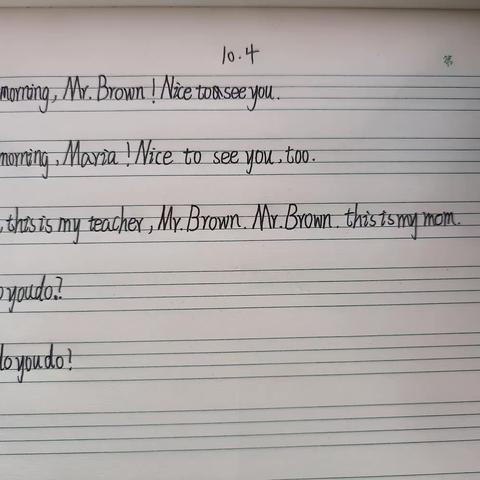 10.4
第
morning, Mr. Brown! Nice to see you.
morning, Maria! Nice to see you, too.
, this is my teacher, Mr. Brown. Mr. Brown. this is my mom.
o you do?
do you do?